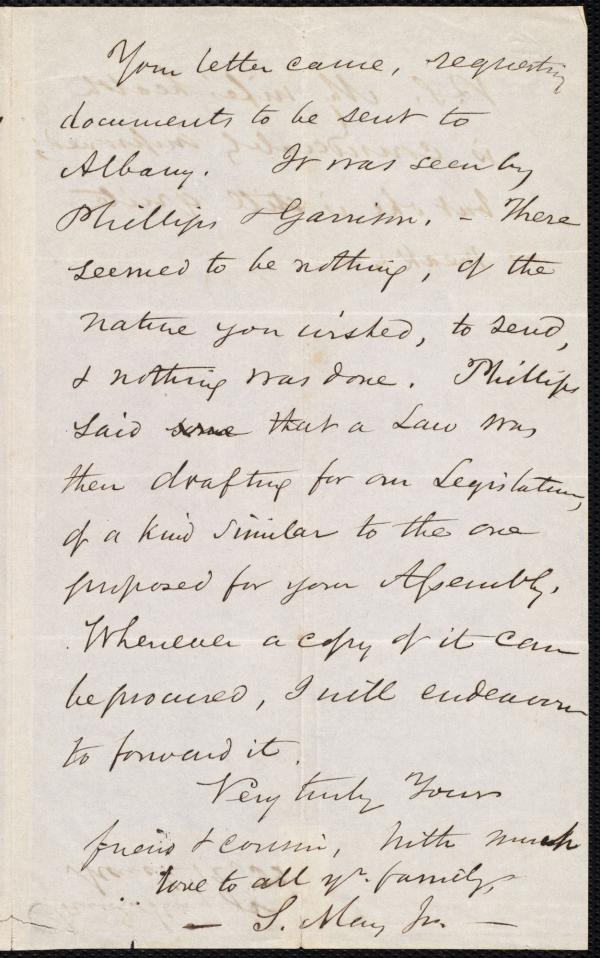 Your letter came, requesting
documents to be sent to
Albany. It was seen by
Phillips & Garrison. - There
seemed to be nothing, of the
nature you wished, to send,
& nothing was done. Phillips
said some that a Law was
then drafting for our Legislature,
of a kind similar to the one
proposed for your Assembly.
Whenever a copy of it can
be procured, I will endeavour
to forward it.
Very truly Yours
friend & cousin, with much
love to all yr. family,
- S. May Jr. -